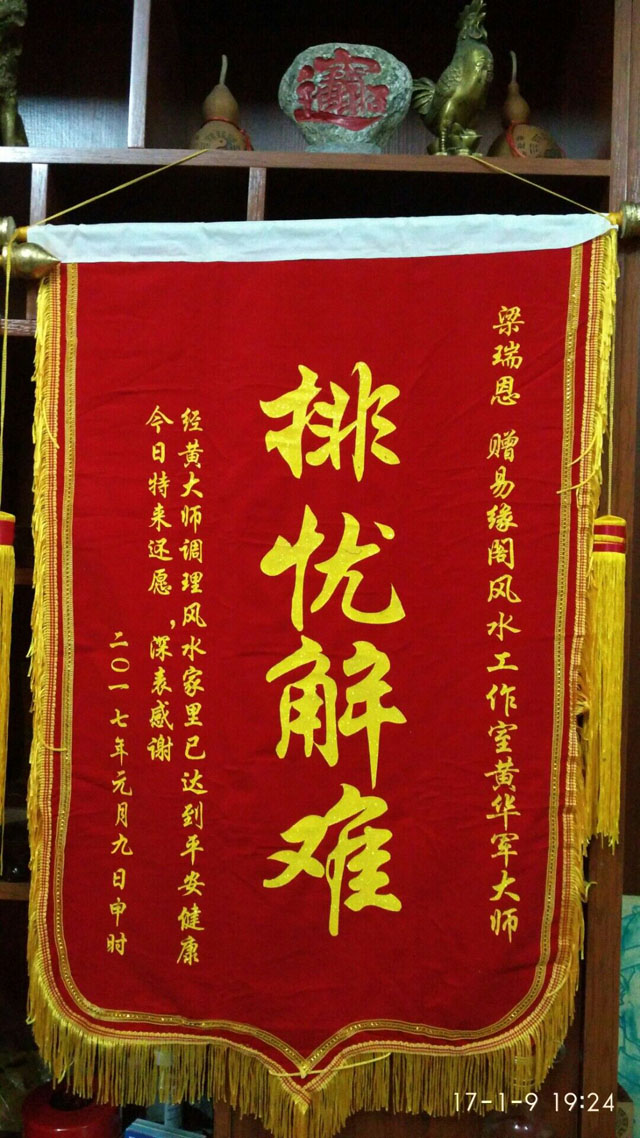 梁瑞恩 赠易缘阁风水工作室黄华军大师
排忧解难
经黄大师调理风水家里已达到平安健康
今日特来还愿,深表感谢
二〇一七年元月九日申时
17-1-9 19:24